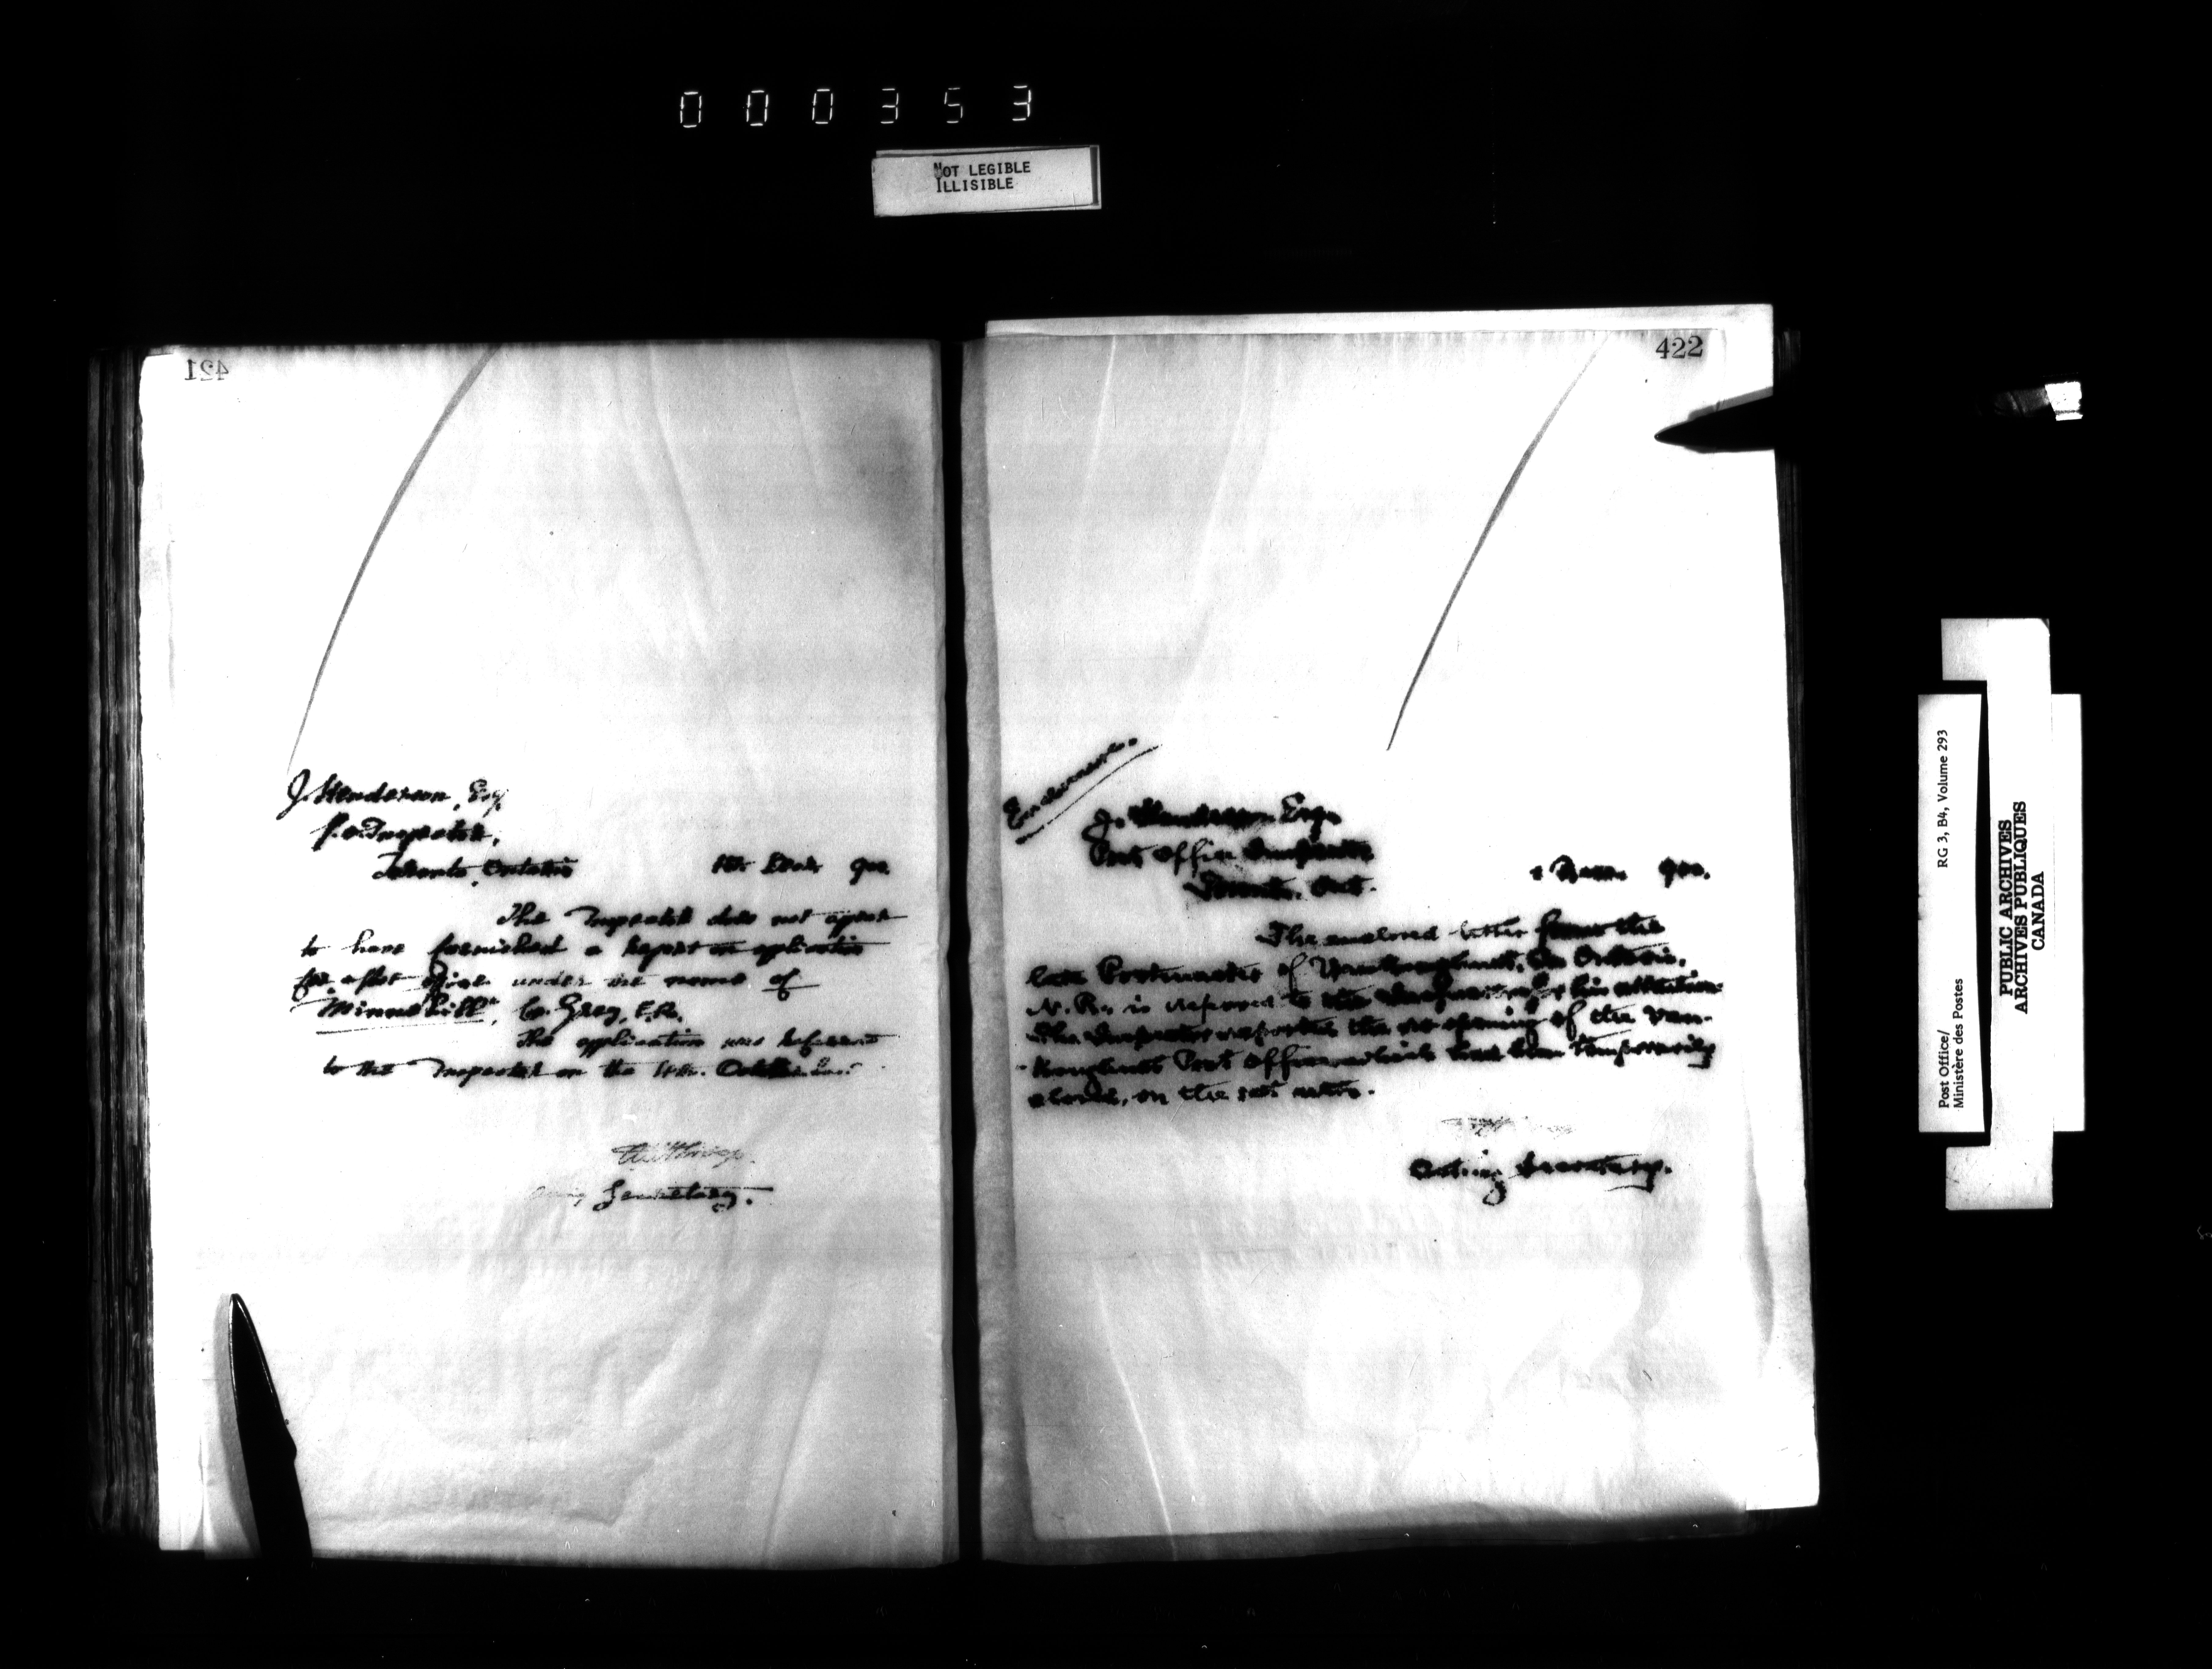 000353
NOT LEGIBLE
ILLISIBLE
421
J. Henderson, Esq.
P.O. Inspector,
Toronto, Ontario
900
The Inspector does not appear
to have furnished a report on application
for a Post Office under the name of
"Minnehill", Co. Grey, E.R.
The application was referred
to the Inspector on the 11th. October
Secretary.
422
J. Henderson Esq.
Post Office Inspector
Toronto, Ont.
900.
The enclosed letter from the
late Postmaster of Vankoughnet, Ontario,
N.R., is referred to the Inspector for his attention.
The Inspector reported the re-opening of the Van-
koughnet Post Office which had been temporarily
closed, on the
Acting Secretary.
Post Office/
Ministère des Postes
RG 3, B4, Volume 293
PUBLIC ARCHIVES
ARCHIVES PUBLIQUES
CANADA